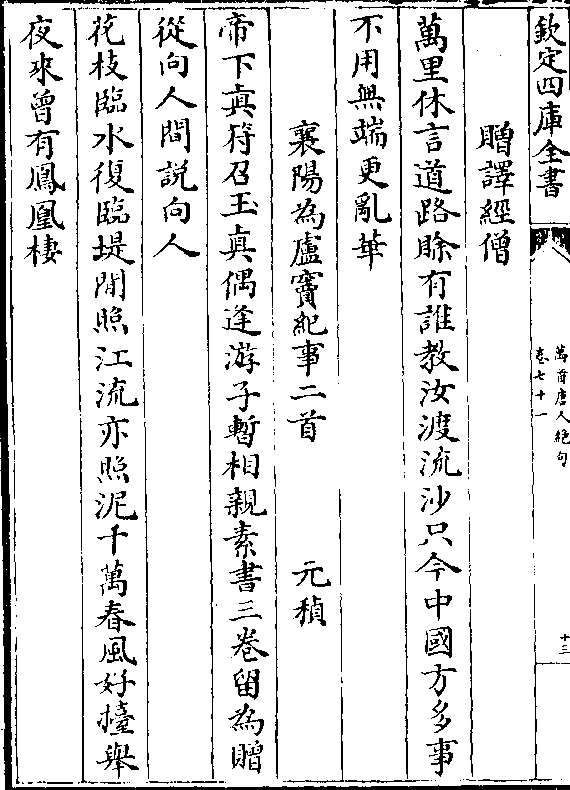 欽定四庫全書
萬首唐人絶句
卷七十一
十三
贈譯經僧
萬里休言道路賖有誰教汝渡流沙只今中國方多事
不用無端更亂華
襄陽為盧竇紀事二首 元稹
帝下真符召玉真偶逢游子暫相親素書三卷留為贈
從向人間説向人
花枝臨水復臨堤閒照江流亦照泥千萬春風好擡舉
夜來曾有鳳凰棲